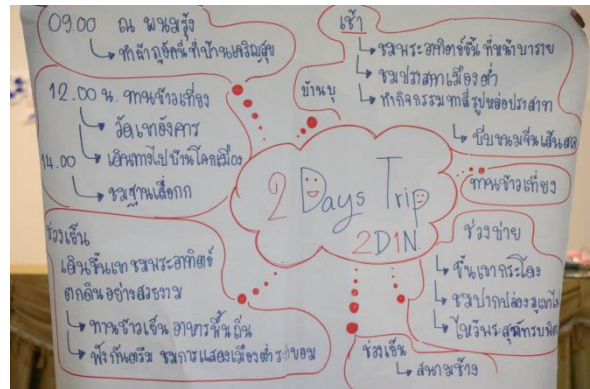 09.00 ณ พนมรุ้ง
ทำผ้าภูอัคนีที่บ้านเจริญสุข
12.00 น. ทานข้าวเที่ยง
วัดเขาอังคาร
14.00 เดินทางไปบ้านโคกเมือง
ชมฐานเสื่อกก
ช่วงเย็น
เดินขึ้นเขา ชมพระอาทิตย์
ตกดินอย่างสวยงาม
ทานข้าวเย็น อาหารพื้นถิ่น
ฟังกันตรึม ชมการแสดงเมืองต่ำ
2 Days Trip
2D1N
บ้านบุ
เช้า
ชมพระอาทิตย์ขึ้น ที่หน้าบาราย
ชมปราสาทเมืองต่ำ
ทำกิจกรรมทาสีรูปหล่อปราสาท
บีบขนมจีนเส้นสด
ทานข้าวเที่ยง
ช่วงบ่าย
ขึ้นเขากระโดง
ชมปากปล่องภูเขาไฟ
ไหว้พระสุภัทรบพิตร
ช่วงเย็น
สนามช้าง